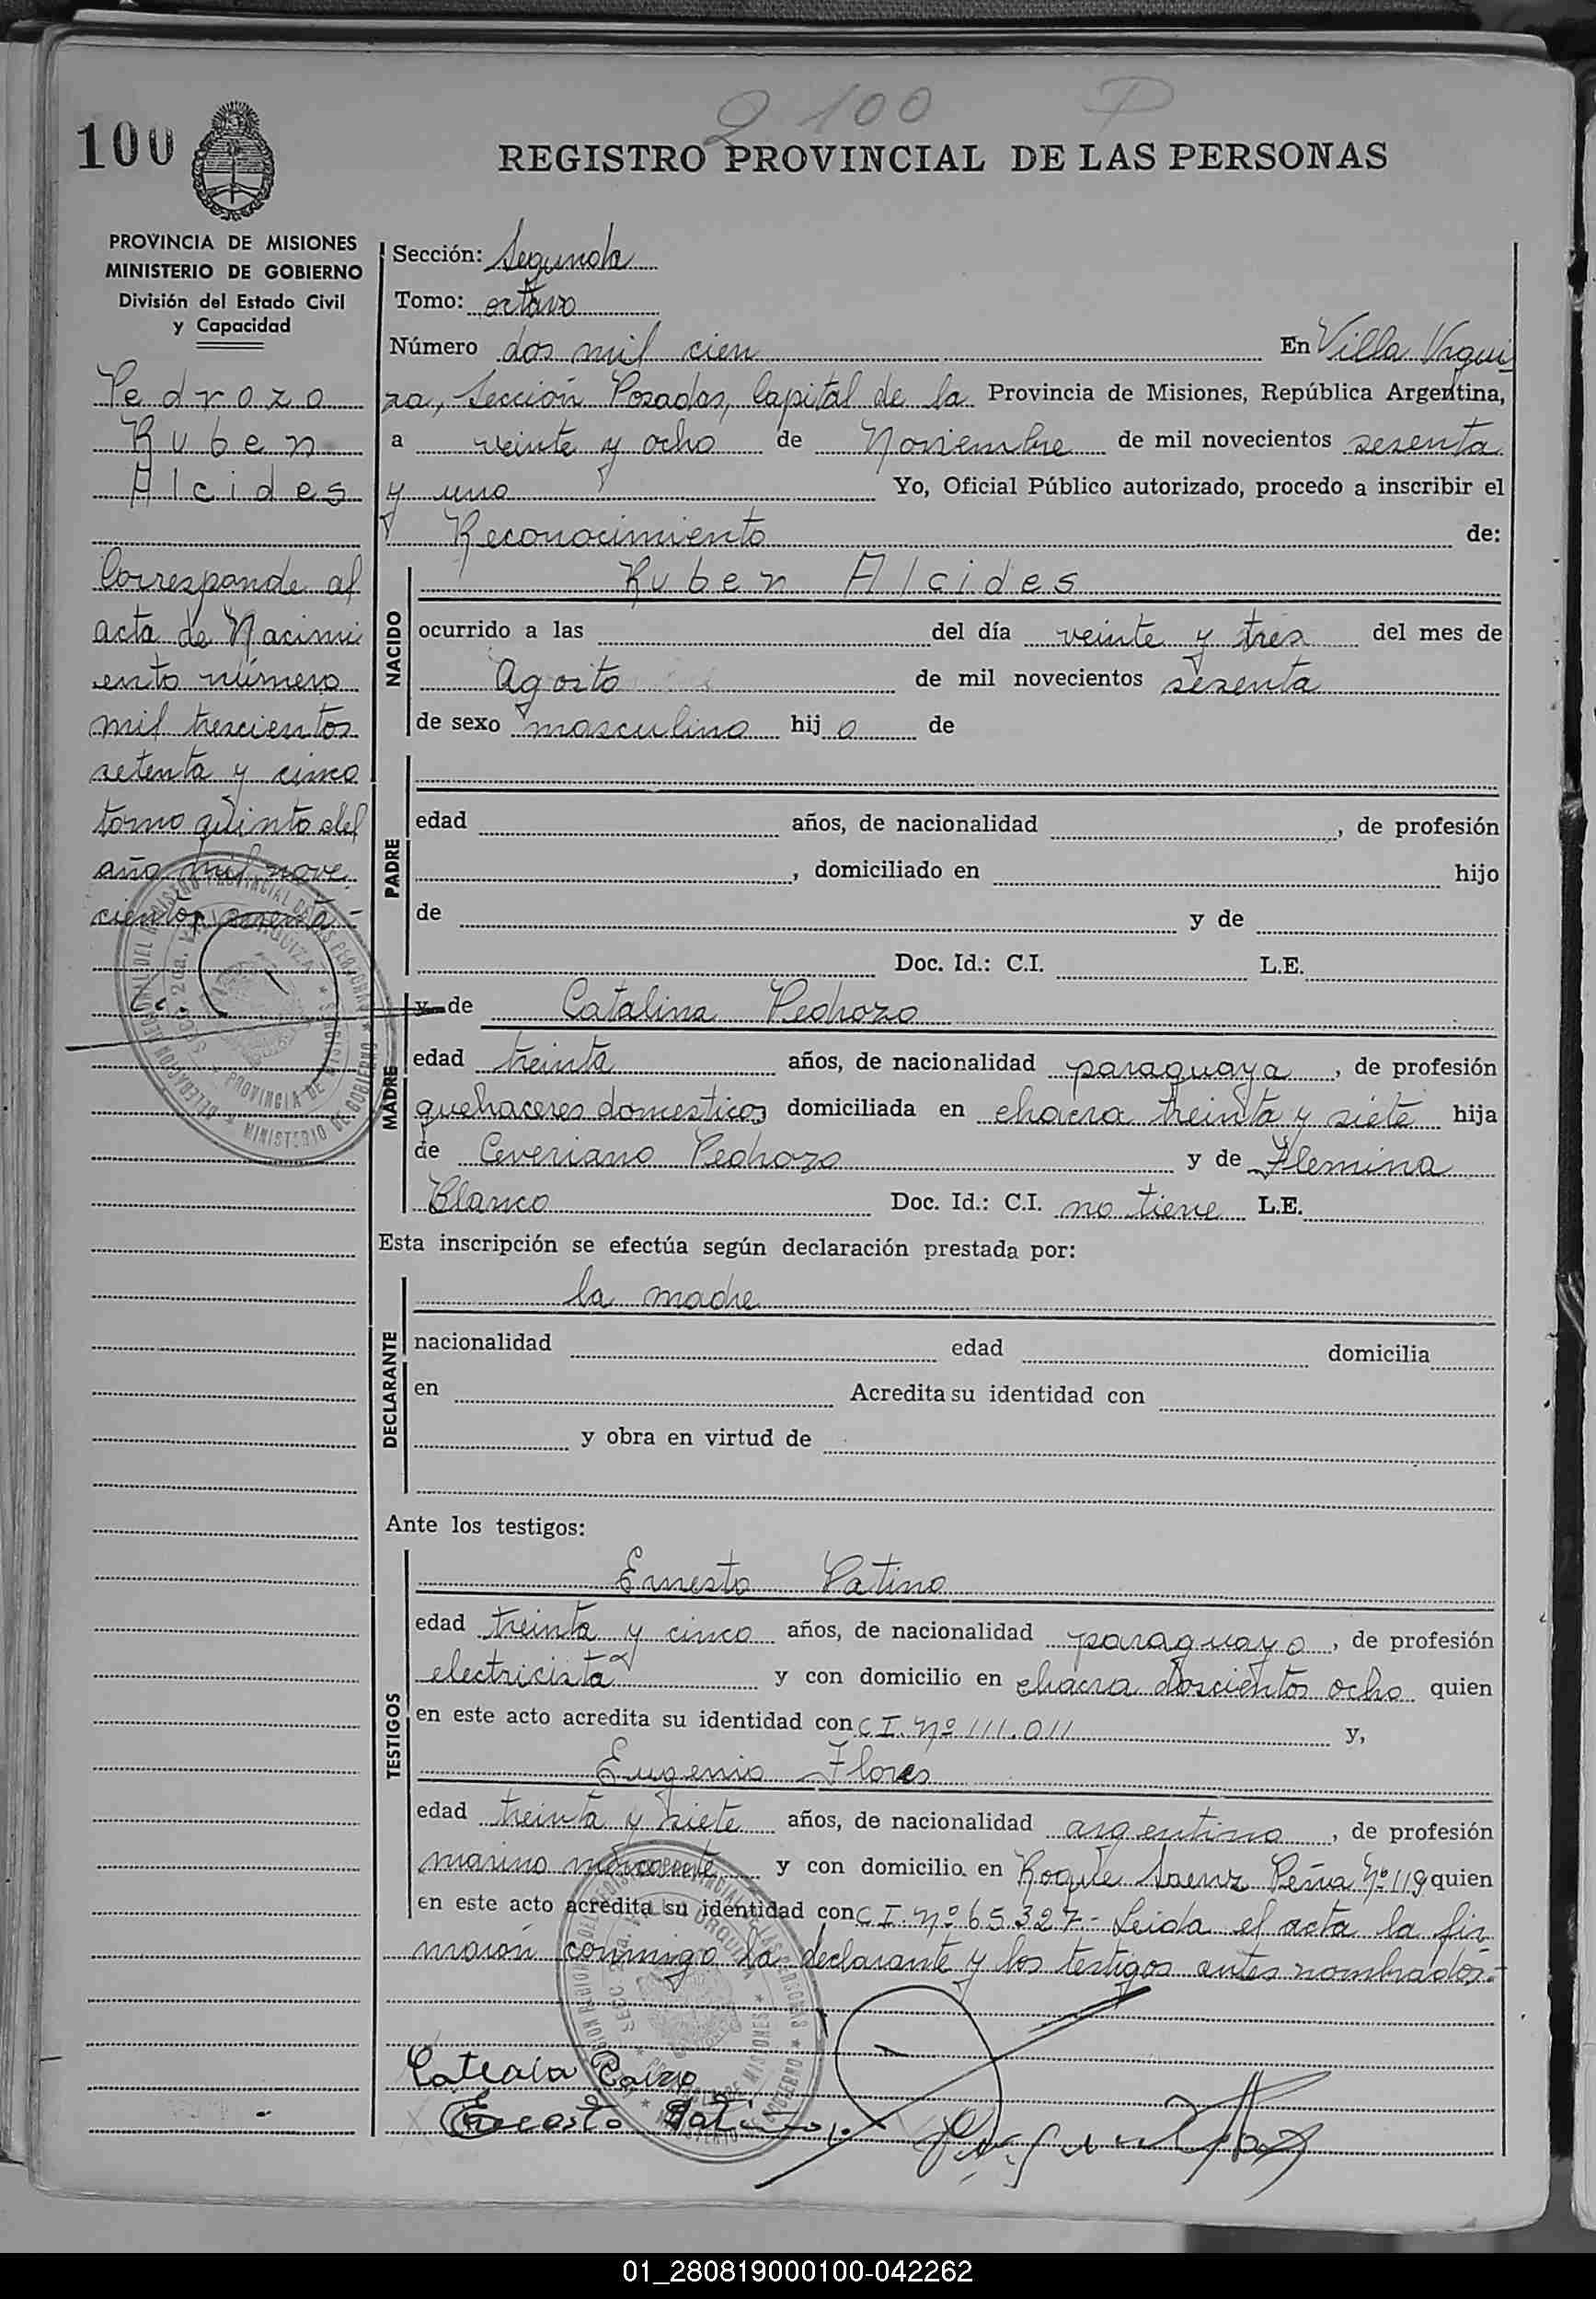 2 100 P
100
REGISTRO PROVINCIAL DE LAS PERSONAS
PROVINCIA DE MISIONES
MINISTERIO DE GOBIERNO
División del Estado Civil
y Capacidad
Pedrozo
Ruben
Alcides
Corresponde al
acta de Nacimi
ento número
mil trescientos
setenta y cinco
tomo quinto del
año mil nove
cientos sesenta.-
Sección: Segunda
Tomo: octavo
Número dos mil cien En Villa Urqui
za, Sección Posadas, Capital de la Provincia de Misiones, República Argentina,
a veinte y ocho de Noviembre de mil novecientos sesenta
y uno Yo, Oficial Público autorizado, procedo a inscribir el
Reconocimiento de:
NACIDO
Ruben Alcides
ocurrido a las del día veinte y tres del mes de
Agosto de mil novecientos sesenta
de sexo masculino hijo de
PADRE
edad años, de nacionalidad , de profesión
, domiciliado en hijo
de y de
Doc. Id.: C.I. L.E.
MADRE
y de Catalina Pedrozo
edad treinta años, de nacionalidad paraguaya, de profesión
quehaceres domesticos domiciliada en chacra treinta y siete hija
de Ceveriano Pedrozo y de Flemina
Blanco Doc. Id.: C.I. no tiene L.E.
Esta inscripción se efectúa según declaración prestada por:
DECLARANTE
la madre
nacionalidad edad domicilia
en Acredita su identidad con
y obra en virtud de
Ante los testigos:
TESTIGOS
Ernesto Patino
edad treinta y cinco años, de nacionalidad paraguayo, de profesión
electricista y con domicilio en chacra doscientos ocho quien
en este acto acredita su identidad con C I. Nº 111.011 y,
Eugenio Flores
edad treinta y siete años, de nacionalidad argentino, de profesión
marino mercante y con domicilio en Roque Saenz Peña Nº 119 quien
en este acto acredita su identidad con C I. Nº 65.327- Leida el acta la fir
maron conmigo la declarante y los testigos antes nombrados.-
Ernesto Patino
01_280819000100-042262